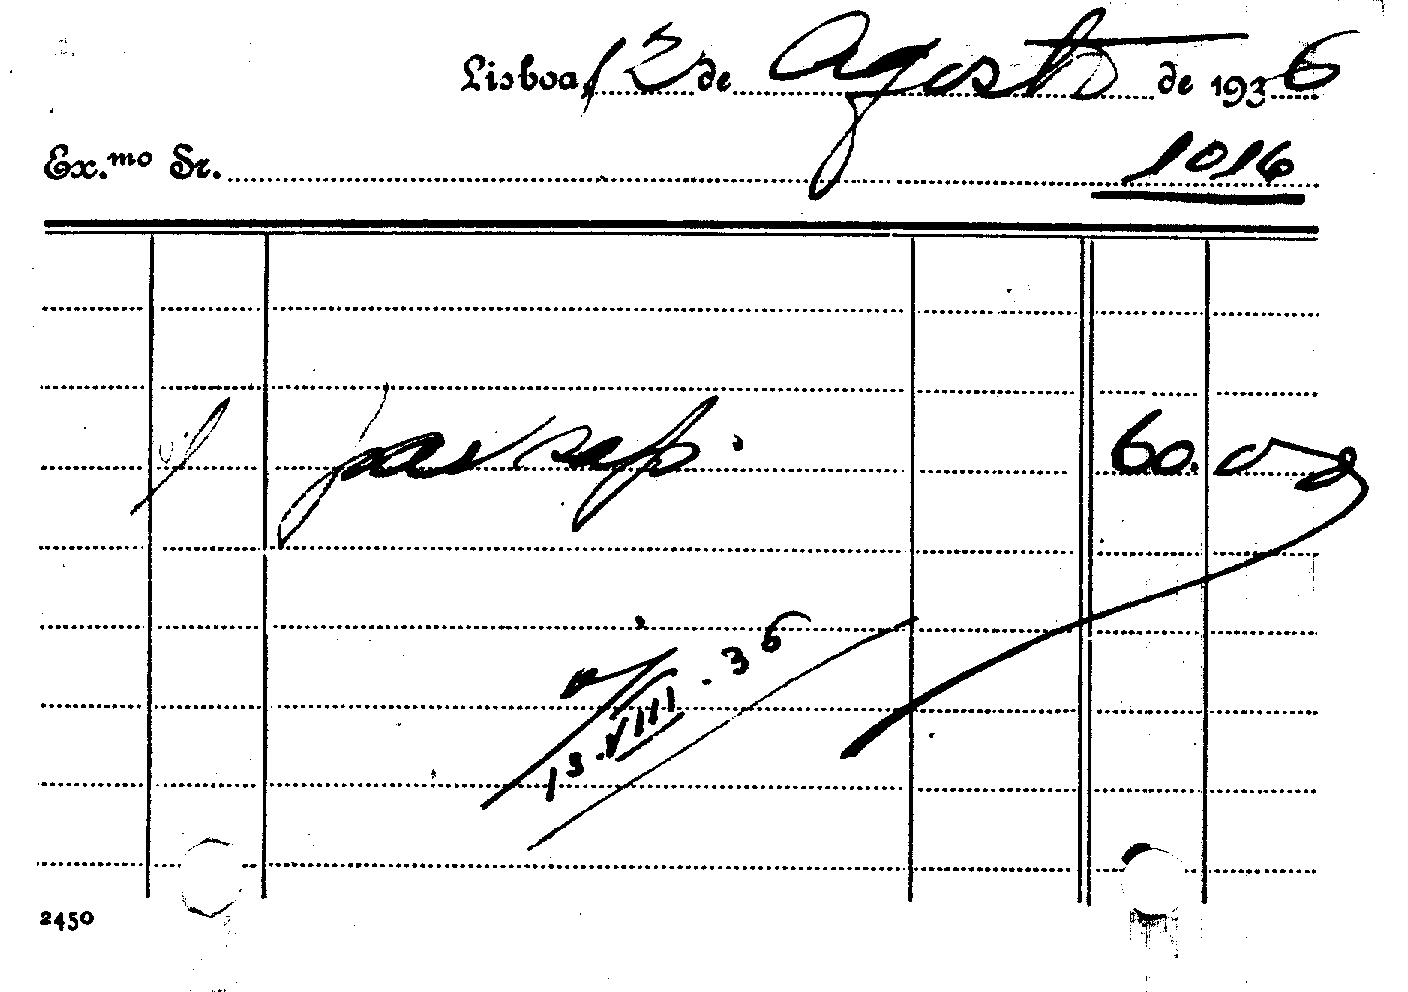 Lisboa, 12 de Agosto de 1936
Ex.mo Sr. 1016
1 passap. 60.00
13.VIII.36
2450